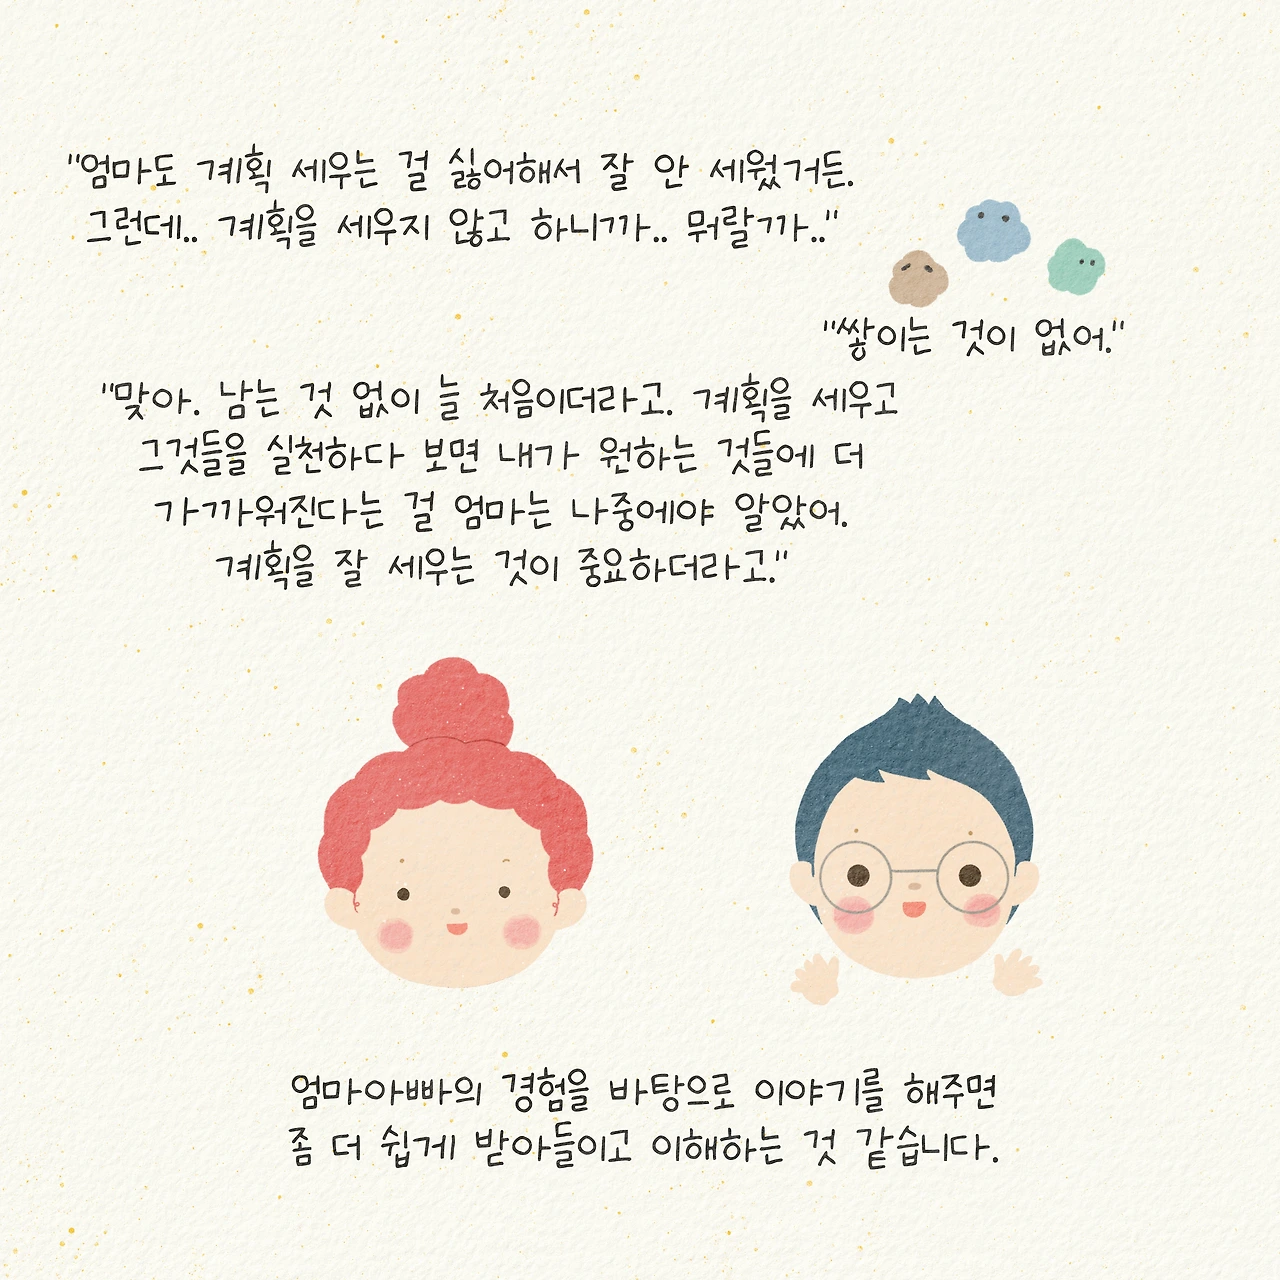 "엄마도 계획 세우는 걸 싫어해서 잘 안 세웠거든.
그런데.. 계획을 세우지 않고 하니까.. 뭐랄까.."
"쌓이는 것이 없어."
"맞아. 남는 것 없이 늘 처음이더라고. 계획을 세우고
그것들을 실천하다 보면 내가 원하는 것들에 더
가까워진다는 걸 엄마는 나중에야 알았어.
계획을 잘 세우는 것이 중요하더라고."
엄마아빠의 경험을 바탕으로 이야기를 해주면
좀 더 쉽게 받아들이고 이해하는 것 같습니다.